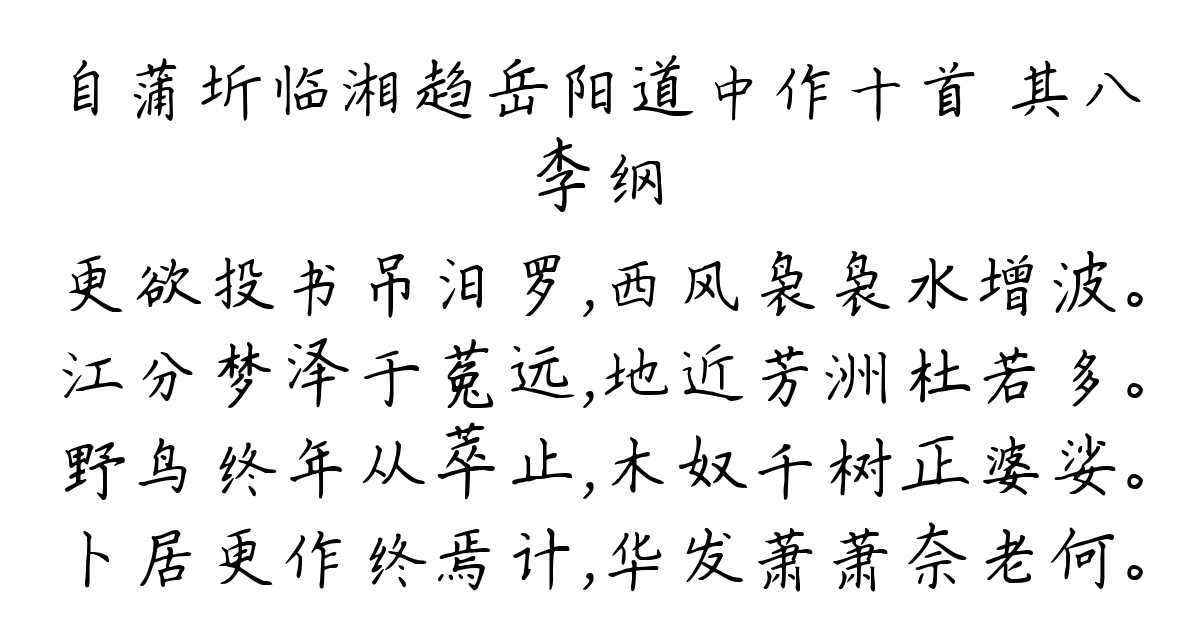 自蒲圻临湘趋岳阳道中作十首 其八
李纲
更欲投书吊汨罗,西风袅袅水增波。
江分梦泽于菟远,地近芳洲杜若多。
野鸟终年从萃止,木奴千树正婆娑。
卜居更作终焉计,华发萧萧奈老何。